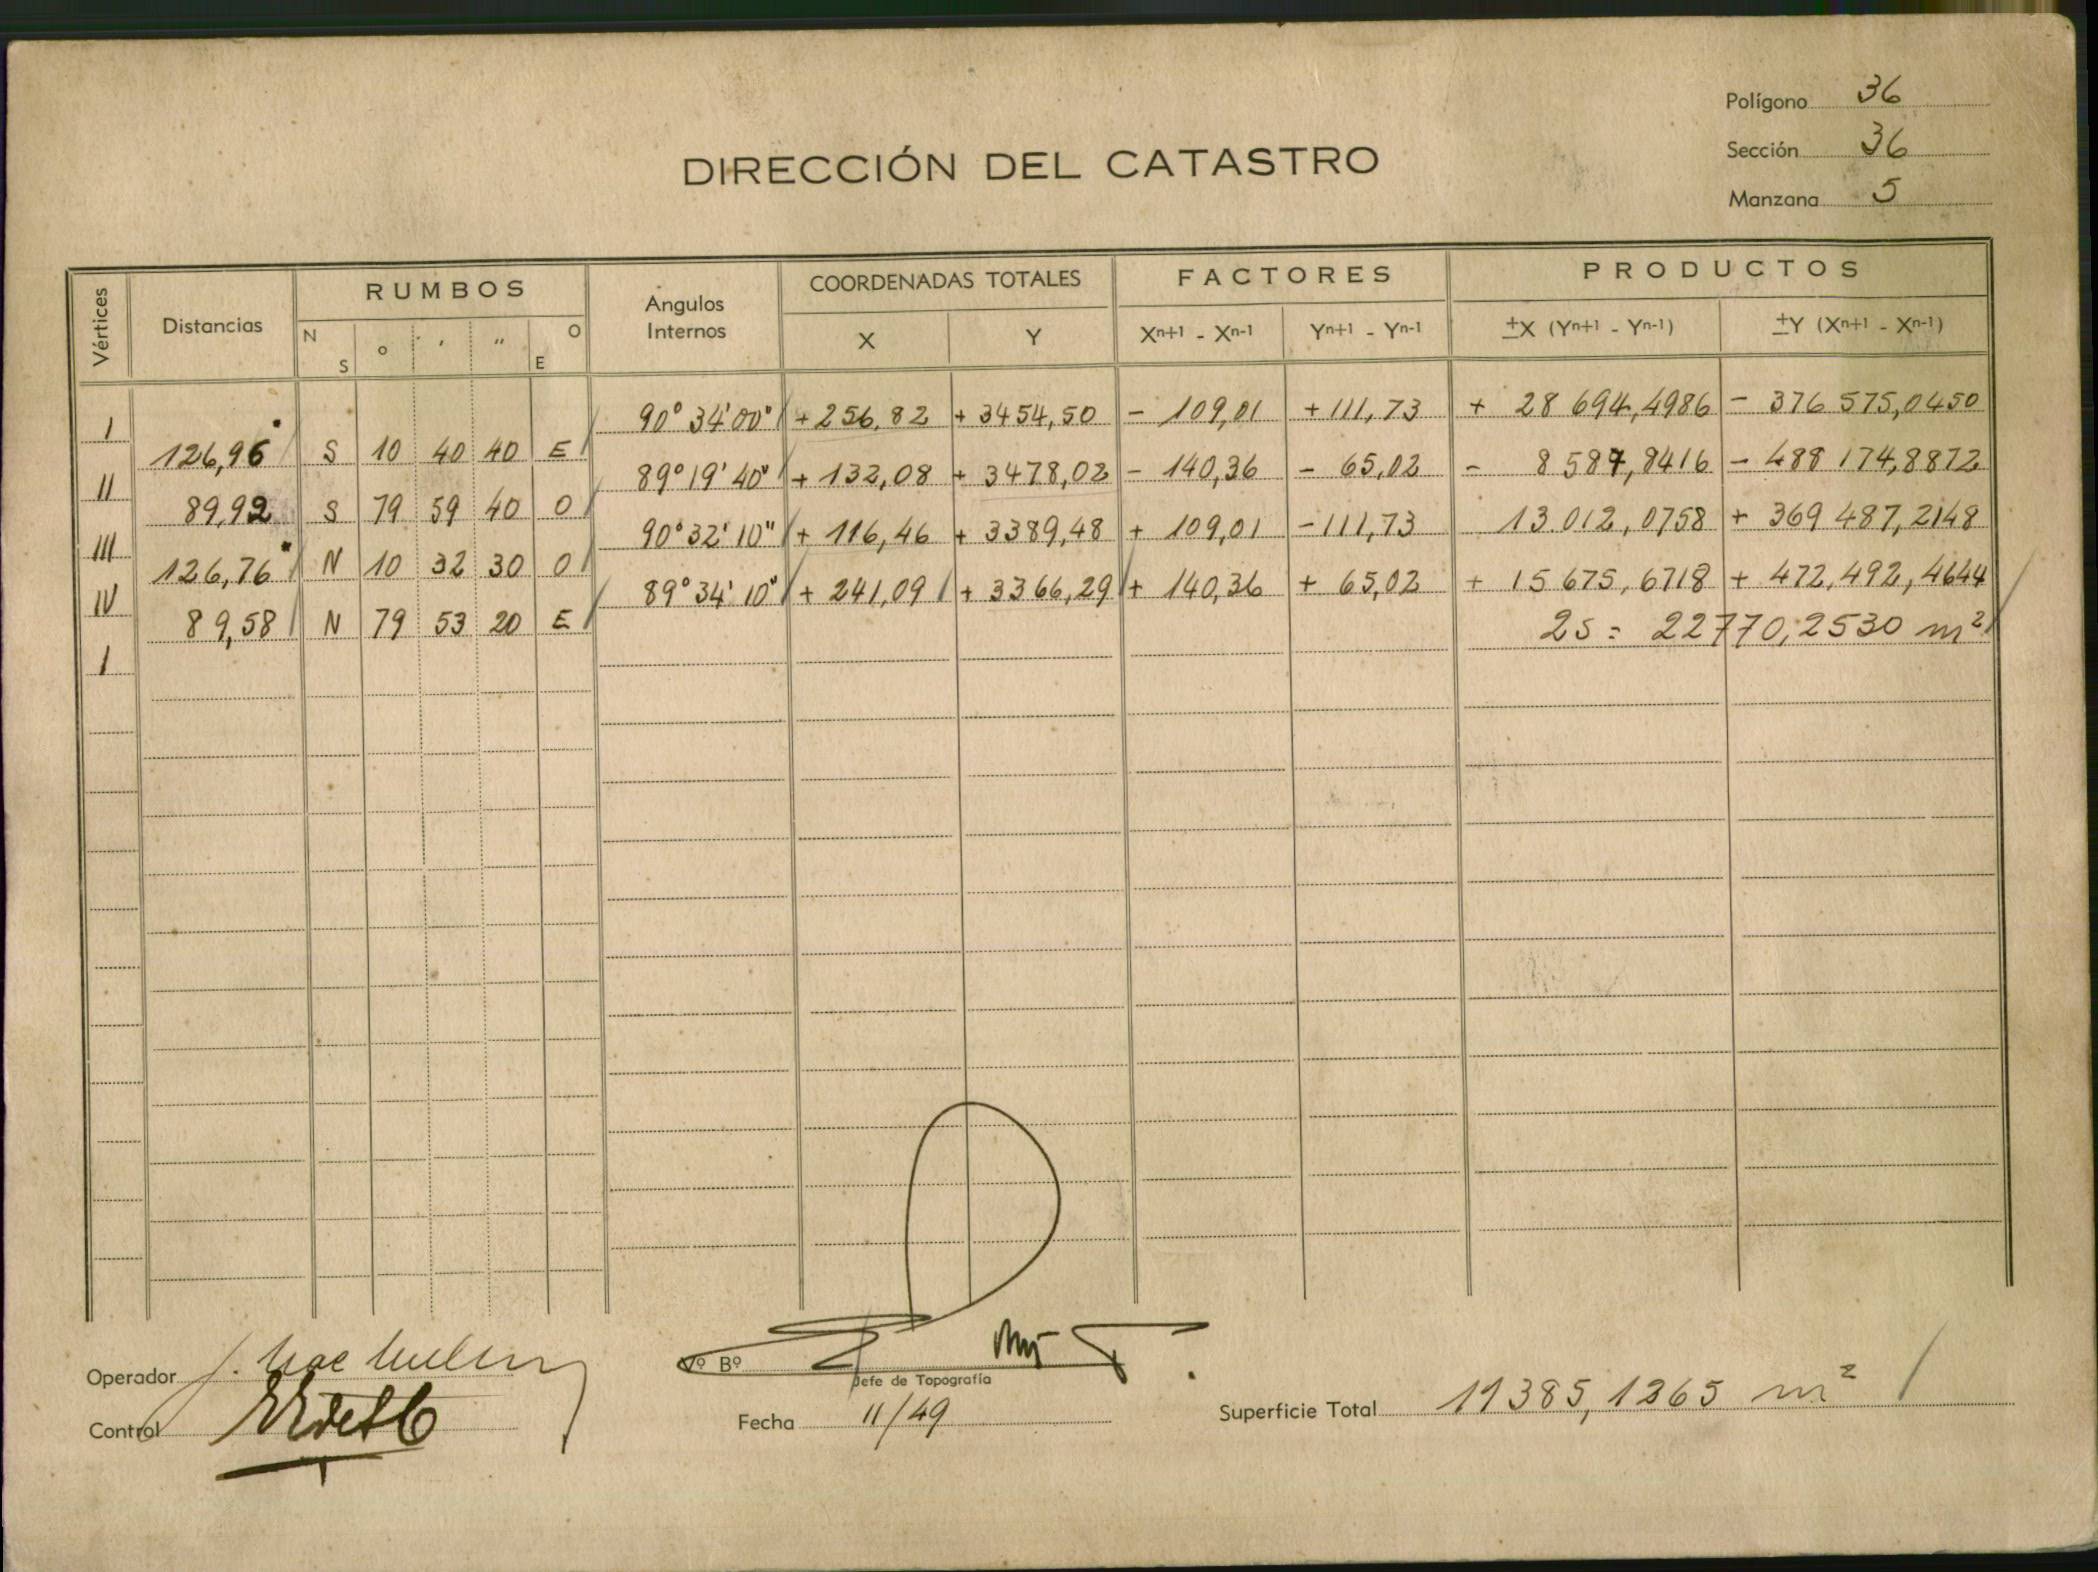 Polígono 36
Sección 36
Manzana 5
DIRECCIÓN DEL CATASTRO
Vértices Distancias RUMBOS Angulos Internos COORDENADAS TOTALES FACTORES PRODUCTOS
N S ° ′ ″ O E X Y Xn+1 - Xn-1 Yn+1 - Yn-1 ±X (Yn+1 - Yn-1) ±Y (Xn+1 - Xn-1)
I 90° 34' 00" + 256,82 + 3454,50 - 109,01 + 111,73 + 28 694,4986 - 376 575,0450
126,96 S 10 40 40 E
II 89° 19' 40" + 132,08 + 3478,02 - 140,36 - 65,02 - 8 587,8416 - 488 174,8872
89,92 S 79 59 40 O
III 90° 32' 10" + 116,46 + 3389,48 + 109,01 - 111,73 13.012,0758 + 369 487,2148
126,76 N 10 32 30 O
IV 89° 34' 10" + 241,09 + 3366,29 + 140,36 + 65,02 + 15 675,6718 + 472,492,4644
89,58 N 79 53 20 E 2S = 22770,2530 m²
I
Operador
Control
Vº Bº
Jefe de Topografía
Fecha 11/49
Superficie Total 11385,1265 m²